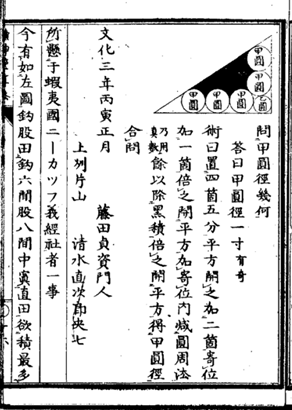 甲圓
甲圓
甲圓
甲圓
甲圓
問甲圓徑幾何
答曰甲圓徑一寸有奇
術曰置四箇五分平方開之加二箇寄位
加一箇倍之開平方加寄位内減圓周法
乃用真数餘以除黑積倍之開平方得甲圓徑
合問
文化三年丙寅正月 藤田貞資門人
上列片山 清水直次郎央七
所懸于蝦夷國ニーカツフ義經社者一事
今有如左圖鈎股田鈎六間股八間中寘直田欲積最多